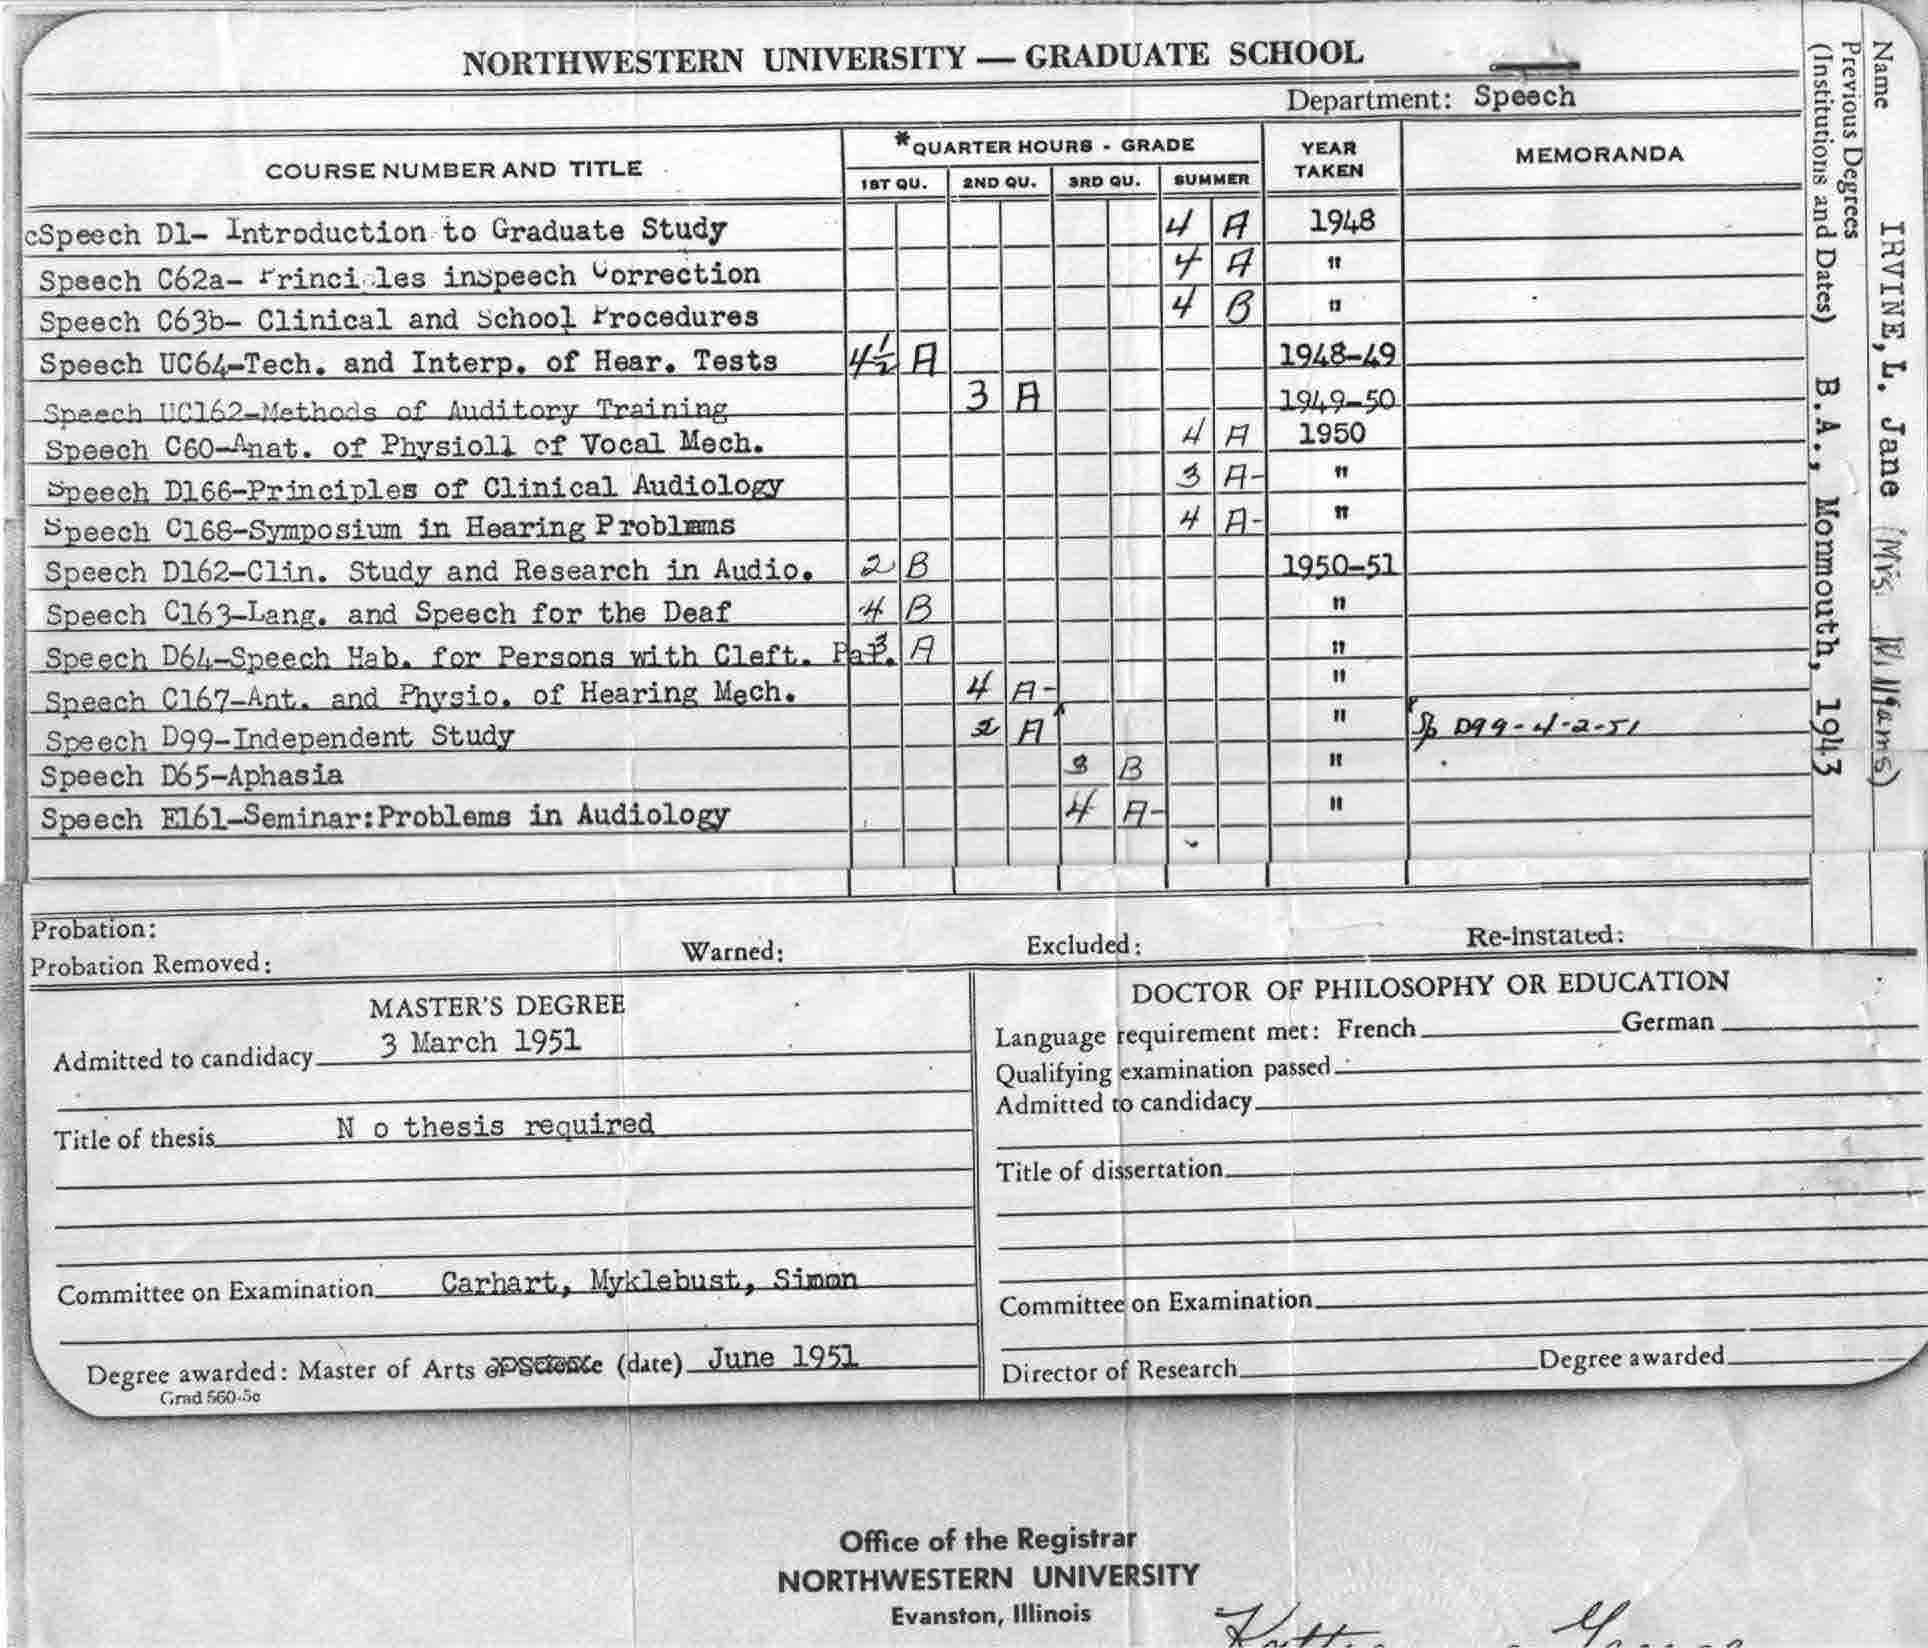 NORTHWESTERN UNIVERSITY — GRADUATE SCHOOL
Department: Speech
COURSE NUMBER AND TITLE *QUARTER HOURS - GRADE YEAR TAKEN MEMORANDA
1ST QU. 2ND QU. 3RD QU. SUMMER
cSpeech D1- Introduction to Graduate Study 4 A 1948
Speech C62a- Princi les inSpeech Correction 4 A "
Speech C63b- Clinical and School Procedures 4 B "
Speech UC64-Tech. and Interp. of Hear. Tests 4½ A 1948-49
Speech UC162-Methods of Auditory Training 3 A 1949-50
Speech C60-Anat. of Physioll of Vocal Mech. 4 A 1950
Speech D166-Principles of Clinical Audiology 3 A- "
Speech C168-Symposium in Hearing Problems 4 A- "
Speech D162-Clin. Study and Research in Audio. 2 B 1950-51
Speech C163-Lang. and Speech for the Deaf 4 B "
Speech D64-Speech Hab. for Persons with Cleft. Pa . 3 A "
Speech C167-Ant. and Physio. of Hearing Mech. 4 A- "
Speech D99-Independent Study 2 A " Sp D99-4-2-51
Speech D65-Aphasia 3 B "
Speech E161-Seminar:Problems in Audiology 4 A- "
Probation:
Probation Removed: Warned: Excluded: Re-instated:
MASTER'S DEGREE
Admitted to candidacy 3 March 1951
Title of thesis N o thesis required
Committee on Examination Carhart, Myklebust, Simon
Degree awarded: Master of Arts or Science (date) June 1951
Grad 560-5c
DOCTOR OF PHILOSOPHY OR EDUCATION
Language requirement met: French German
Qualifying examination passed
Admitted to candidacy
Title of dissertation
Committee on Examination
Director of Research Degree awarded
Name IRVINE, L. Jane (Mrs. Williams)
Previous Degrees
(Institutions and Dates) B.A., Monmouth, 1943
Office of the Registrar
NORTHWESTERN UNIVERSITY
Evanston, Illinois